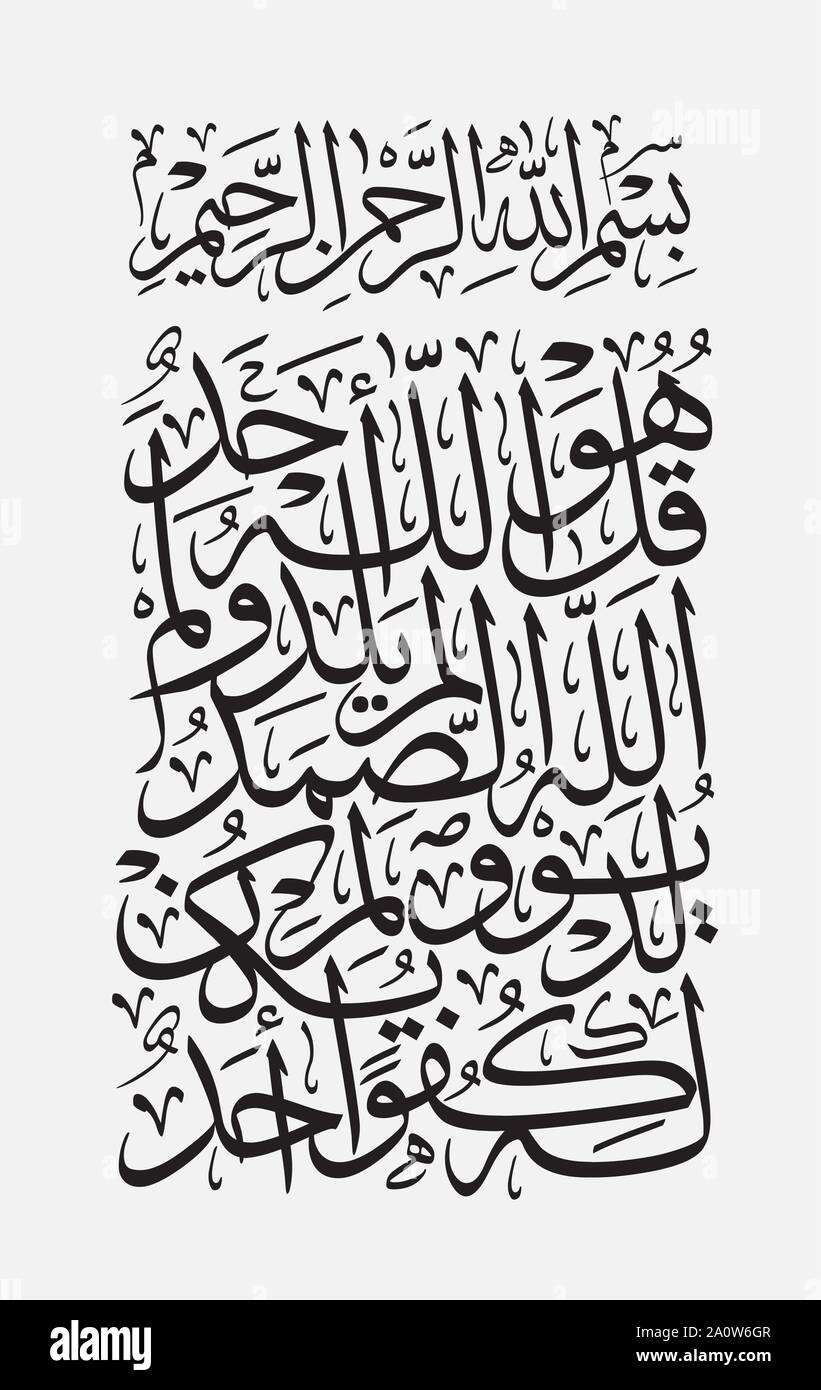 بِسْمِ اللَّهِ الرَّحْمٰنِ الرَّحِيمِ
قُلْ هُوَ اللَّهُ أَحَدٌ
اللَّهُ الصَّمَدُ لَمْ يَلِدْ وَلَمْ
يُولَدْ وَلَمْ يَكُنْ
لَهُ كُفُوًا أَحَدٌ
alamy
alamy
Image ID: 2A0W6GR
www.alamy.com